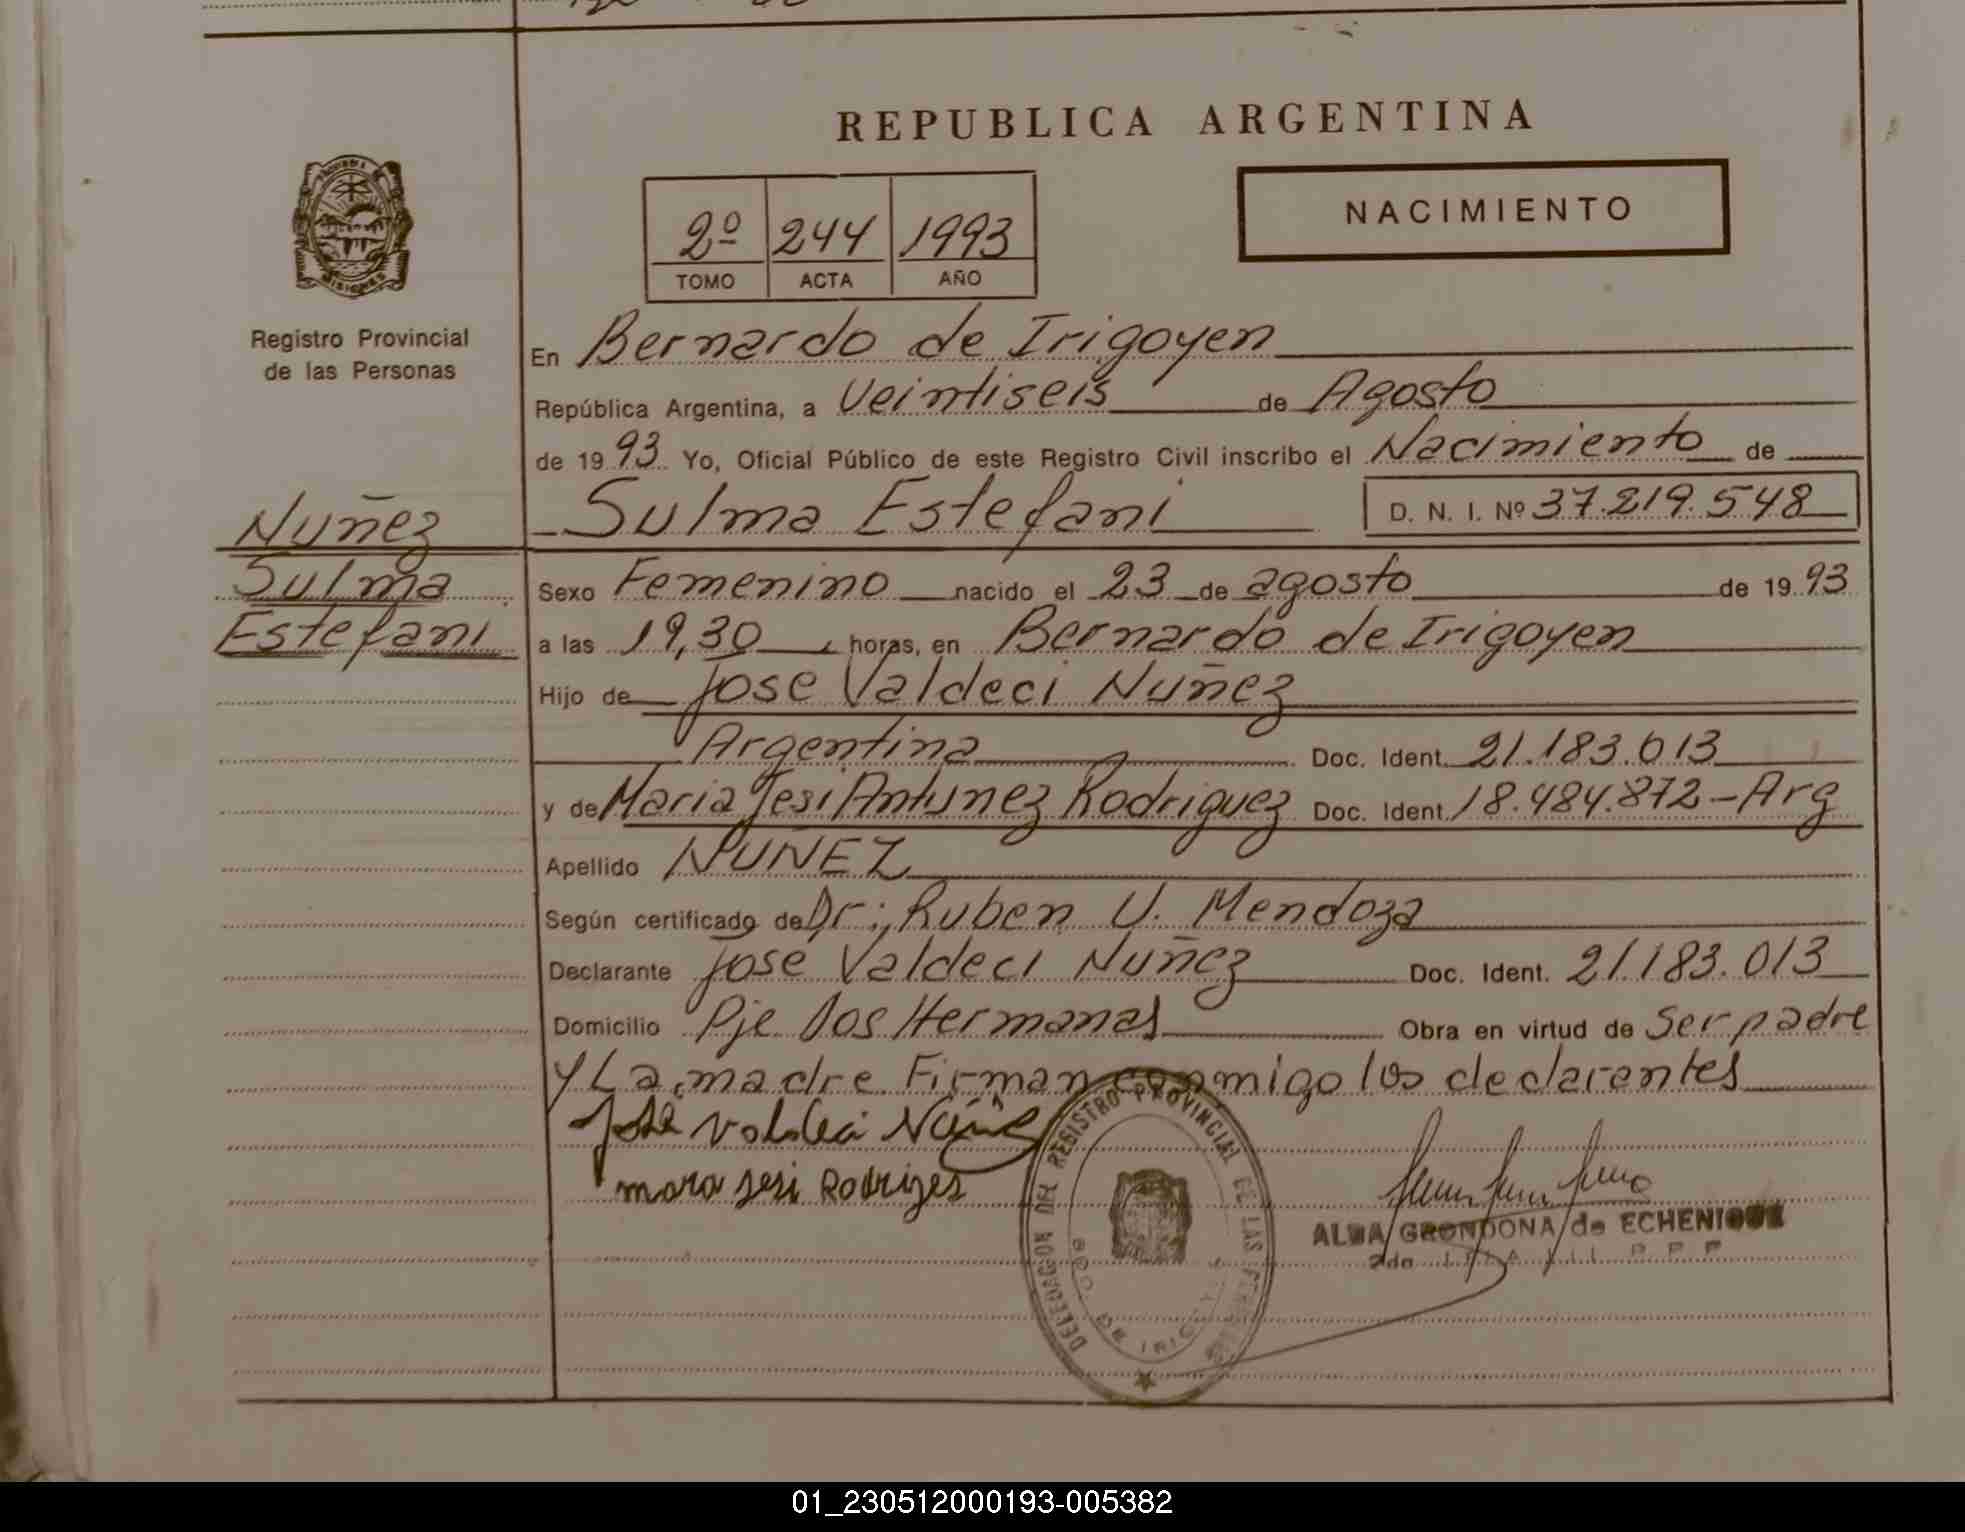 REPUBLICA ARGENTINA
NACIMIENTO
2º 244 1993
TOMO ACTA AÑO
PROVINCIA
MISIONES
Registro Provincial
de las Personas
En Bernardo de Irigoyen
República Argentina, a Veintiseis de Agosto
de 19 93 Yo, Oficial Público de este Registro Civil inscribo el Nacimiento de
Sulma Estefani D. N. I. Nº 37.219.548
Nuñez
Sulma
Estefani
Sexo Femenino nacido el 23 de agosto de 19 93
a las 19,30 horas, en Bernardo de Irigoyen
Hijo de Jose Valdeci Nuñez
Argentina Doc. Ident. 21.183.013
y de Maria Jesi Antunez Rodriguez Doc. Ident. 18.484.872-Arg
Apellido NUÑEZ
Según certificado de Dr: Ruben U. Mendoza
Declarante Jose Valdeci Nuñez Doc. Ident. 21.183.013
Domicilio Pje Dos Hermanas Obra en virtud de Ser padre
y La madre Firman conmigo los declarentes
José Valdeci Nuñez
mara Jesi Rodrizes
DELEGACION DEL REGISTRO PROVINCIAL DE LAS PERSONAS
BDO. DE IRIGOYEN
ALBA GRONDONA de ECHENIQUE
01_230512000193-005382